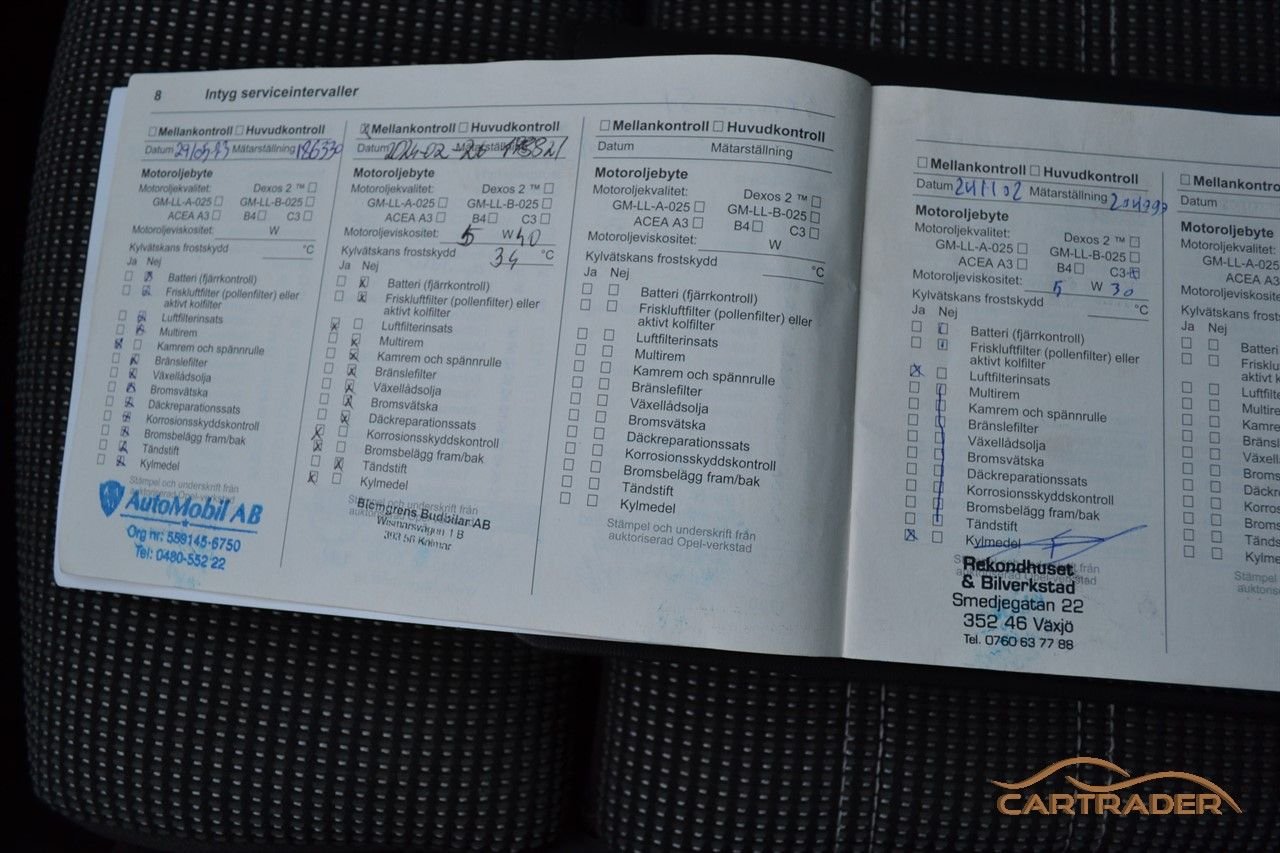 8 Intyg serviceintervaller
Mellankontroll Huvudkontroll
Datum Mätarställning 186330
Motoroljebyte
Motoroljekvalitet: Dexos 2 ™
GM-LL-A-025 GM-LL-B-025
ACEA A3 B4 C3
Motoroljeviskositet: W
Kylvätskans frostskydd °C
Ja Nej
Batteri (fjärrkontroll)
Friskluftfilter (pollenfilter) eller
aktivt kolfilter
Luftfilterinsats
Multirem
Kamrem och spännrulle
Bränslefilter
Växellådsolja
Bromsvätska
Däckreparationssats
Korrosionsskyddskontroll
Bromsbelägg fram/bak
Tändstift
Kylmedel
Stämpel och underskrift från
auktoriserad Opel-verkstad
AutoMobil AB
Org nr: 559145-6750
Tel: 0480-552 22
Mellankontroll Huvudkontroll
Datum 2024-02-20 Mätarställning
Motoroljebyte
Motoroljekvalitet: Dexos 2 ™
GM-LL-A-025 GM-LL-B-025
ACEA A3 B4 C3
Motoroljeviskositet: 5 W 40
Kylvätskans frostskydd 34 °C
Ja Nej
Batteri (fjärrkontroll)
Friskluftfilter (pollenfilter) eller
aktivt kolfilter
Luftfilterinsats
Multirem
Kamrem och spännrulle
Bränslefilter
Växellådsolja
Bromsvätska
Däckreparationssats
Korrosionsskyddskontroll
Bromsbelägg fram/bak
Tändstift
Kylmedel
Stämpel och underskrift från
auktoriserad Opel-verkstad
Blemgrens Budbilar AB
Wismarsvägen 1 B
393 56 Kalmar
Mellankontroll Huvudkontroll
Datum Mätarställning
Motoroljebyte
Motoroljekvalitet: Dexos 2 ™
GM-LL-A-025 GM-LL-B-025
ACEA A3 B4 C3
Motoroljeviskositet: W
Kylvätskans frostskydd °C
Ja Nej
Batteri (fjärrkontroll)
Friskluftfilter (pollenfilter) eller
aktivt kolfilter
Luftfilterinsats
Multirem
Kamrem och spännrulle
Bränslefilter
Växellådsolja
Bromsvätska
Däckreparationssats
Korrosionsskyddskontroll
Bromsbelägg fram/bak
Tändstift
Kylmedel
Stämpel och underskrift från
auktoriserad Opel-verkstad
Mellankontroll Huvudkontroll
Datum 241102 Mätarställning
Motoroljebyte
Motoroljekvalitet: Dexos 2 ™
GM-LL-A-025 GM-LL-B-025
ACEA A3 B4 C3
Motoroljeviskositet: 5 W 30
Kylvätskans frostskydd °C
Ja Nej
Batteri (fjärrkontroll)
Friskluftfilter (pollenfilter) eller
aktivt kolfilter
Luftfilterinsats
Multirem
Kamrem och spännrulle
Bränslefilter
Växellådsolja
Bromsvätska
Däckreparationssats
Korrosionsskyddskontroll
Bromsbelägg fram/bak
Tändstift
Kylmedel
Stämpel och underskrift från
auktoriserad Opel-verkstad
Rekondhuset
& Bilverkstad
Smedjegatan 22
352 46 Växjö
Tel. 0760 63 77 88
Mellankontro
Datum
Motoroljebyte
Motoroljekvalitet:
GM-LL-A-025
ACEA A3
Motoroljeviskosite
Kylvätskans frosts
Ja Nej
Batteri
Friskluf
aktivt k
Luftfilte
Multire
Kamre
Bränsl
Växell
Broms
Däckre
Korros
Broms
Tänds
Kylme
Stämpel
auktoris
CARTRADER